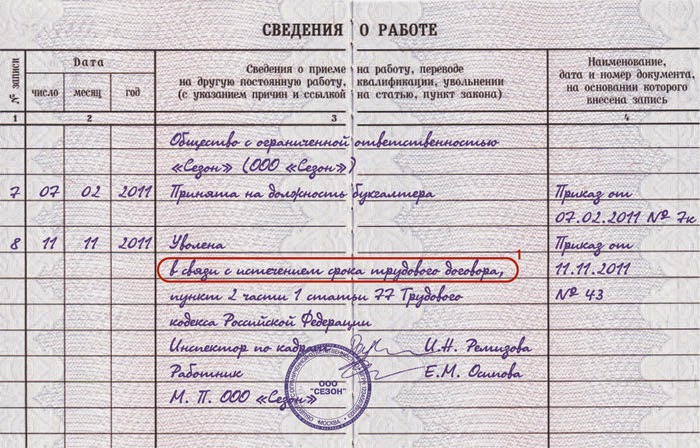 СВЕДЕНИЯ О РАБОТЕ
№ записи
Дата
число
месяц
год
Сведения о приеме на работу, переводе
на другую постоянную работу, квалификации, увольнении
(с указанием причин и ссылкой на статью, пункт закона)
Наименование,
дата и номер документа,
на основании которого
внесена запись
1 2 3 4
Общество с ограниченной ответственностью
«Сезон» (ООО «Сезон»)
7 07 02 2011 Принята на должность бухгалтера Приказ от
07.02.2011 № 7к
8 11 11 2011 Уволена Приказ от
в связи с истечением срока трудового договора, 1 11.11.2011
пункт 2 части 1 статьи 77 Трудового № 43
кодекса Российской Федерации
Инспектор по кадрам И.Н. Ремизова
Работник Е.М. Осипова
М. П. ООО «Сезон»
ООО
"СЕЗОН"
МОСКВА